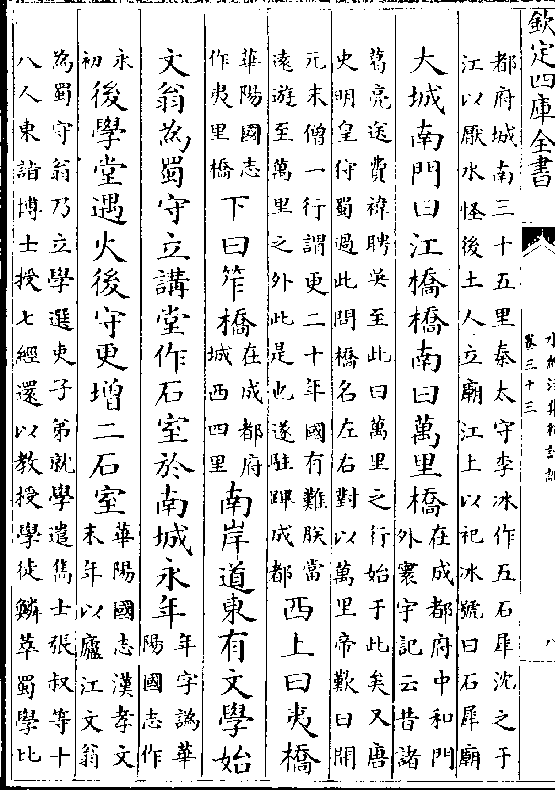 欽定四庫全書
水經注集釋訂訛
卷三十三
八
都府城南三十五里秦太守李冰作五石犀沈之于
江以厭水怪後土人立廟江上以祀冰號曰石犀廟
大城南門曰江橋橋南曰萬里橋
在成都府中和門
外寰宇記云昔諸
葛亮送費禕聘吳至此曰萬里之行始于此矣又唐
史明皇狩蜀過此問橋名左右對以萬里帝歎曰開
元末僧一行謂更二十年國有難朕當
遠遊至萬里之外此是也遂駐蹕成都
西上曰夷橋
華陽國志
作夷里橋
下曰笮橋
在成都府
城西四里
南岸道東有文學始
文翁為蜀守立講堂作石室於南城永年
年字譌華
陽國志作
永
初
後學堂遇火後守更增二石室
華陽國志漢孝文
末年以廬江文翁
為蜀守翁乃立學選吏子弟就學遣雋士張叔等十
八人東詣博士授七經還以教授學徒鱗萃蜀學比